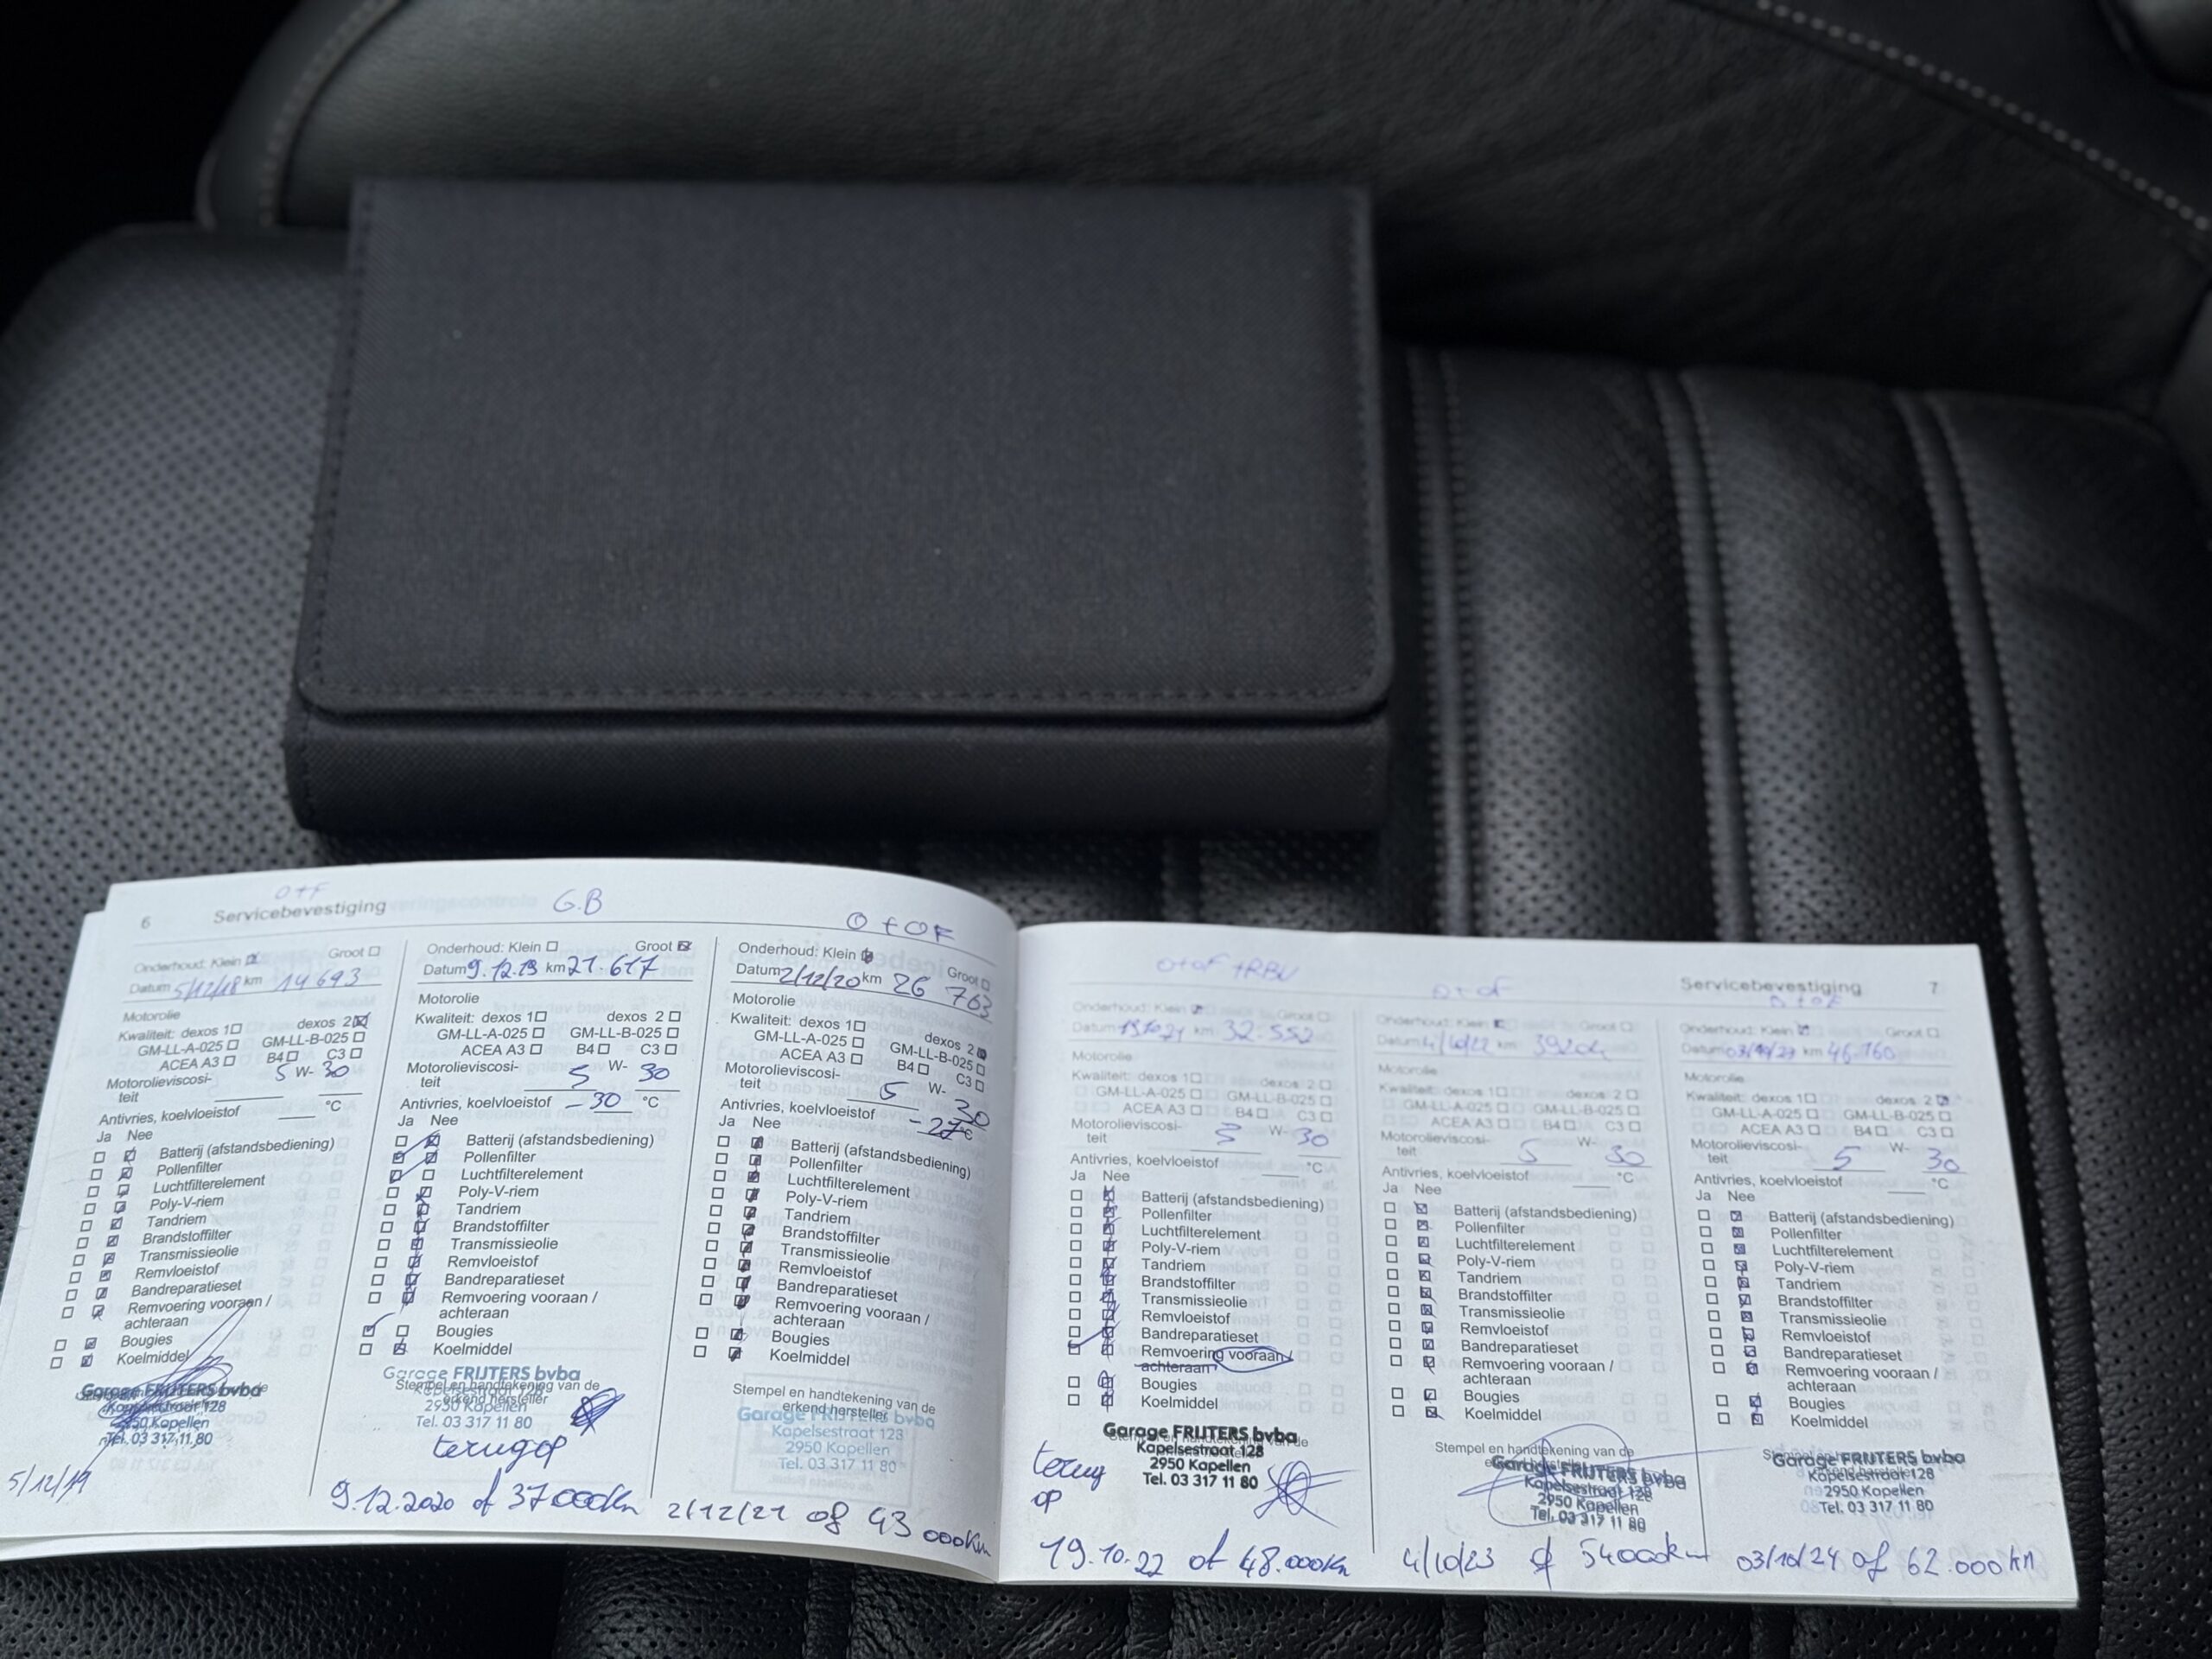 6
O+F
Servicebevestiging
G.B
O+OF
Onderhoud: Klein Groot
Datum 5/12/18 km 14 693
Motorolie
Kwaliteit: dexos 1 dexos 2
GM-LL-A-025 GM-LL-B-025
ACEA A3 B4 C3
Motorolieviscosi- 5 W- 30
teit
Antivries, koelvloeistof °C
Ja Nee
Batterij (afstandsbediening)
Pollenfilter
Luchtfilterelement
Poly-V-riem
Tandriem
Brandstoffilter
Transmissieolie
Remvloeistof
Bandreparatieset
Remvoering vooraan /
achteraan
Bougies
Koelmiddel
Garage FRIJTERS bvba
Kapelsestraat 128
2950 Kapellen
Tel. 03 317 11 80
5/12/19
Onderhoud: Klein Groot
Datum 9.12.19 km 21.617
Motorolie
Kwaliteit: dexos 1 dexos 2
GM-LL-A-025 GM-LL-B-025
ACEA A3 B4 C3
Motorolieviscosi- 5 W- 30
teit
Antivries, koelvloeistof -30 °C
Ja Nee
Batterij (afstandsbediening)
Pollenfilter
Luchtfilterelement
Poly-V-riem
Tandriem
Brandstoffilter
Transmissieolie
Remvloeistof
Bandreparatieset
Remvoering vooraan /
achteraan
Bougies
Koelmiddel
Garage FRIJTERS bvba
Stempel en handtekening van de
erkend hersteller
2950 Kapellen
Tel. 03 317 11 80
terug op
9.12.2020 of 37000Km
Onderhoud: Klein Groot
Datum 2/12/20 km 26 763
Motorolie
Kwaliteit: dexos 1 dexos 2
GM-LL-A-025 GM-LL-B-025
ACEA A3 B4 C3
Motorolieviscosi- 5 W- 30
teit
Antivries, koelvloeistof -27 °C
Ja Nee
Batterij (afstandsbediening)
Pollenfilter
Luchtfilterelement
Poly-V-riem
Tandriem
Brandstoffilter
Transmissieolie
Remvloeistof
Bandreparatieset
Remvoering vooraan /
achteraan
Bougies
Koelmiddel
Stempel en handtekening van de
erkend hersteller
Garage FRIJTERS bvba
Kapelsestraat 123
2950 Kapellen
Tel. 03 317 11 80
2/12/21 of 43 000Km
Servicebevestiging 7
O+OF +RBV
O+OF
O+OF
Onderhoud: Klein Groot
Datum km 32.552
Motorolie
Kwaliteit: dexos 1 dexos 2
GM-LL-A-025 GM-LL-B-025
ACEA A3 B4 C3
Motorolieviscosi- 5 W- 30
teit
Antivries, koelvloeistof °C
Ja Nee
Batterij (afstandsbediening)
Pollenfilter
Luchtfilterelement
Poly-V-riem
Tandriem
Brandstoffilter
Transmissieolie
Remvloeistof
Bandreparatieset
Remvoering vooraan /
achteraan
Bougies
Koelmiddel
Garage FRIJTERS bvba
Kapelsestraat 128
2950 Kapellen
Tel. 03 317 11 80
terug
op
19.10.22 of 48.000Km
Onderhoud: Klein Groot
Datum 4/10/22 km
Motorolie
Kwaliteit: dexos 1 dexos 2
GM-LL-A-025 GM-LL-B-025
ACEA A3 B4 C3
Motorolieviscosi- 5 W- 30
teit
Antivries, koelvloeistof °C
Ja Nee
Batterij (afstandsbediening)
Pollenfilter
Luchtfilterelement
Poly-V-riem
Tandriem
Brandstoffilter
Transmissieolie
Remvloeistof
Bandreparatieset
Remvoering vooraan /
achteraan
Bougies
Koelmiddel
Stempel en handtekening van de
Garage FRIJTERS bvba
Kapelsestraat 128
2950 Kapellen
Tel. 03 317 11 80
4/10/23 of 54000km
Onderhoud: Klein Groot
Datum km 46.160
Motorolie
Kwaliteit: dexos 1 dexos 2
GM-LL-A-025 GM-LL-B-025
ACEA A3 B4 C3
Motorolieviscosi- 5 W- 30
teit
Antivries, koelvloeistof °C
Ja Nee
Batterij (afstandsbediening)
Pollenfilter
Luchtfilterelement
Poly-V-riem
Tandriem
Brandstoffilter
Transmissieolie
Remvloeistof
Bandreparatieset
Remvoering vooraan /
achteraan
Bougies
Koelmiddel
Garage FRIJTERS bvba
Kapelsestraat 128
2950 Kapellen
Tel. 03 317 11 80
03/10/24 of 62.000km